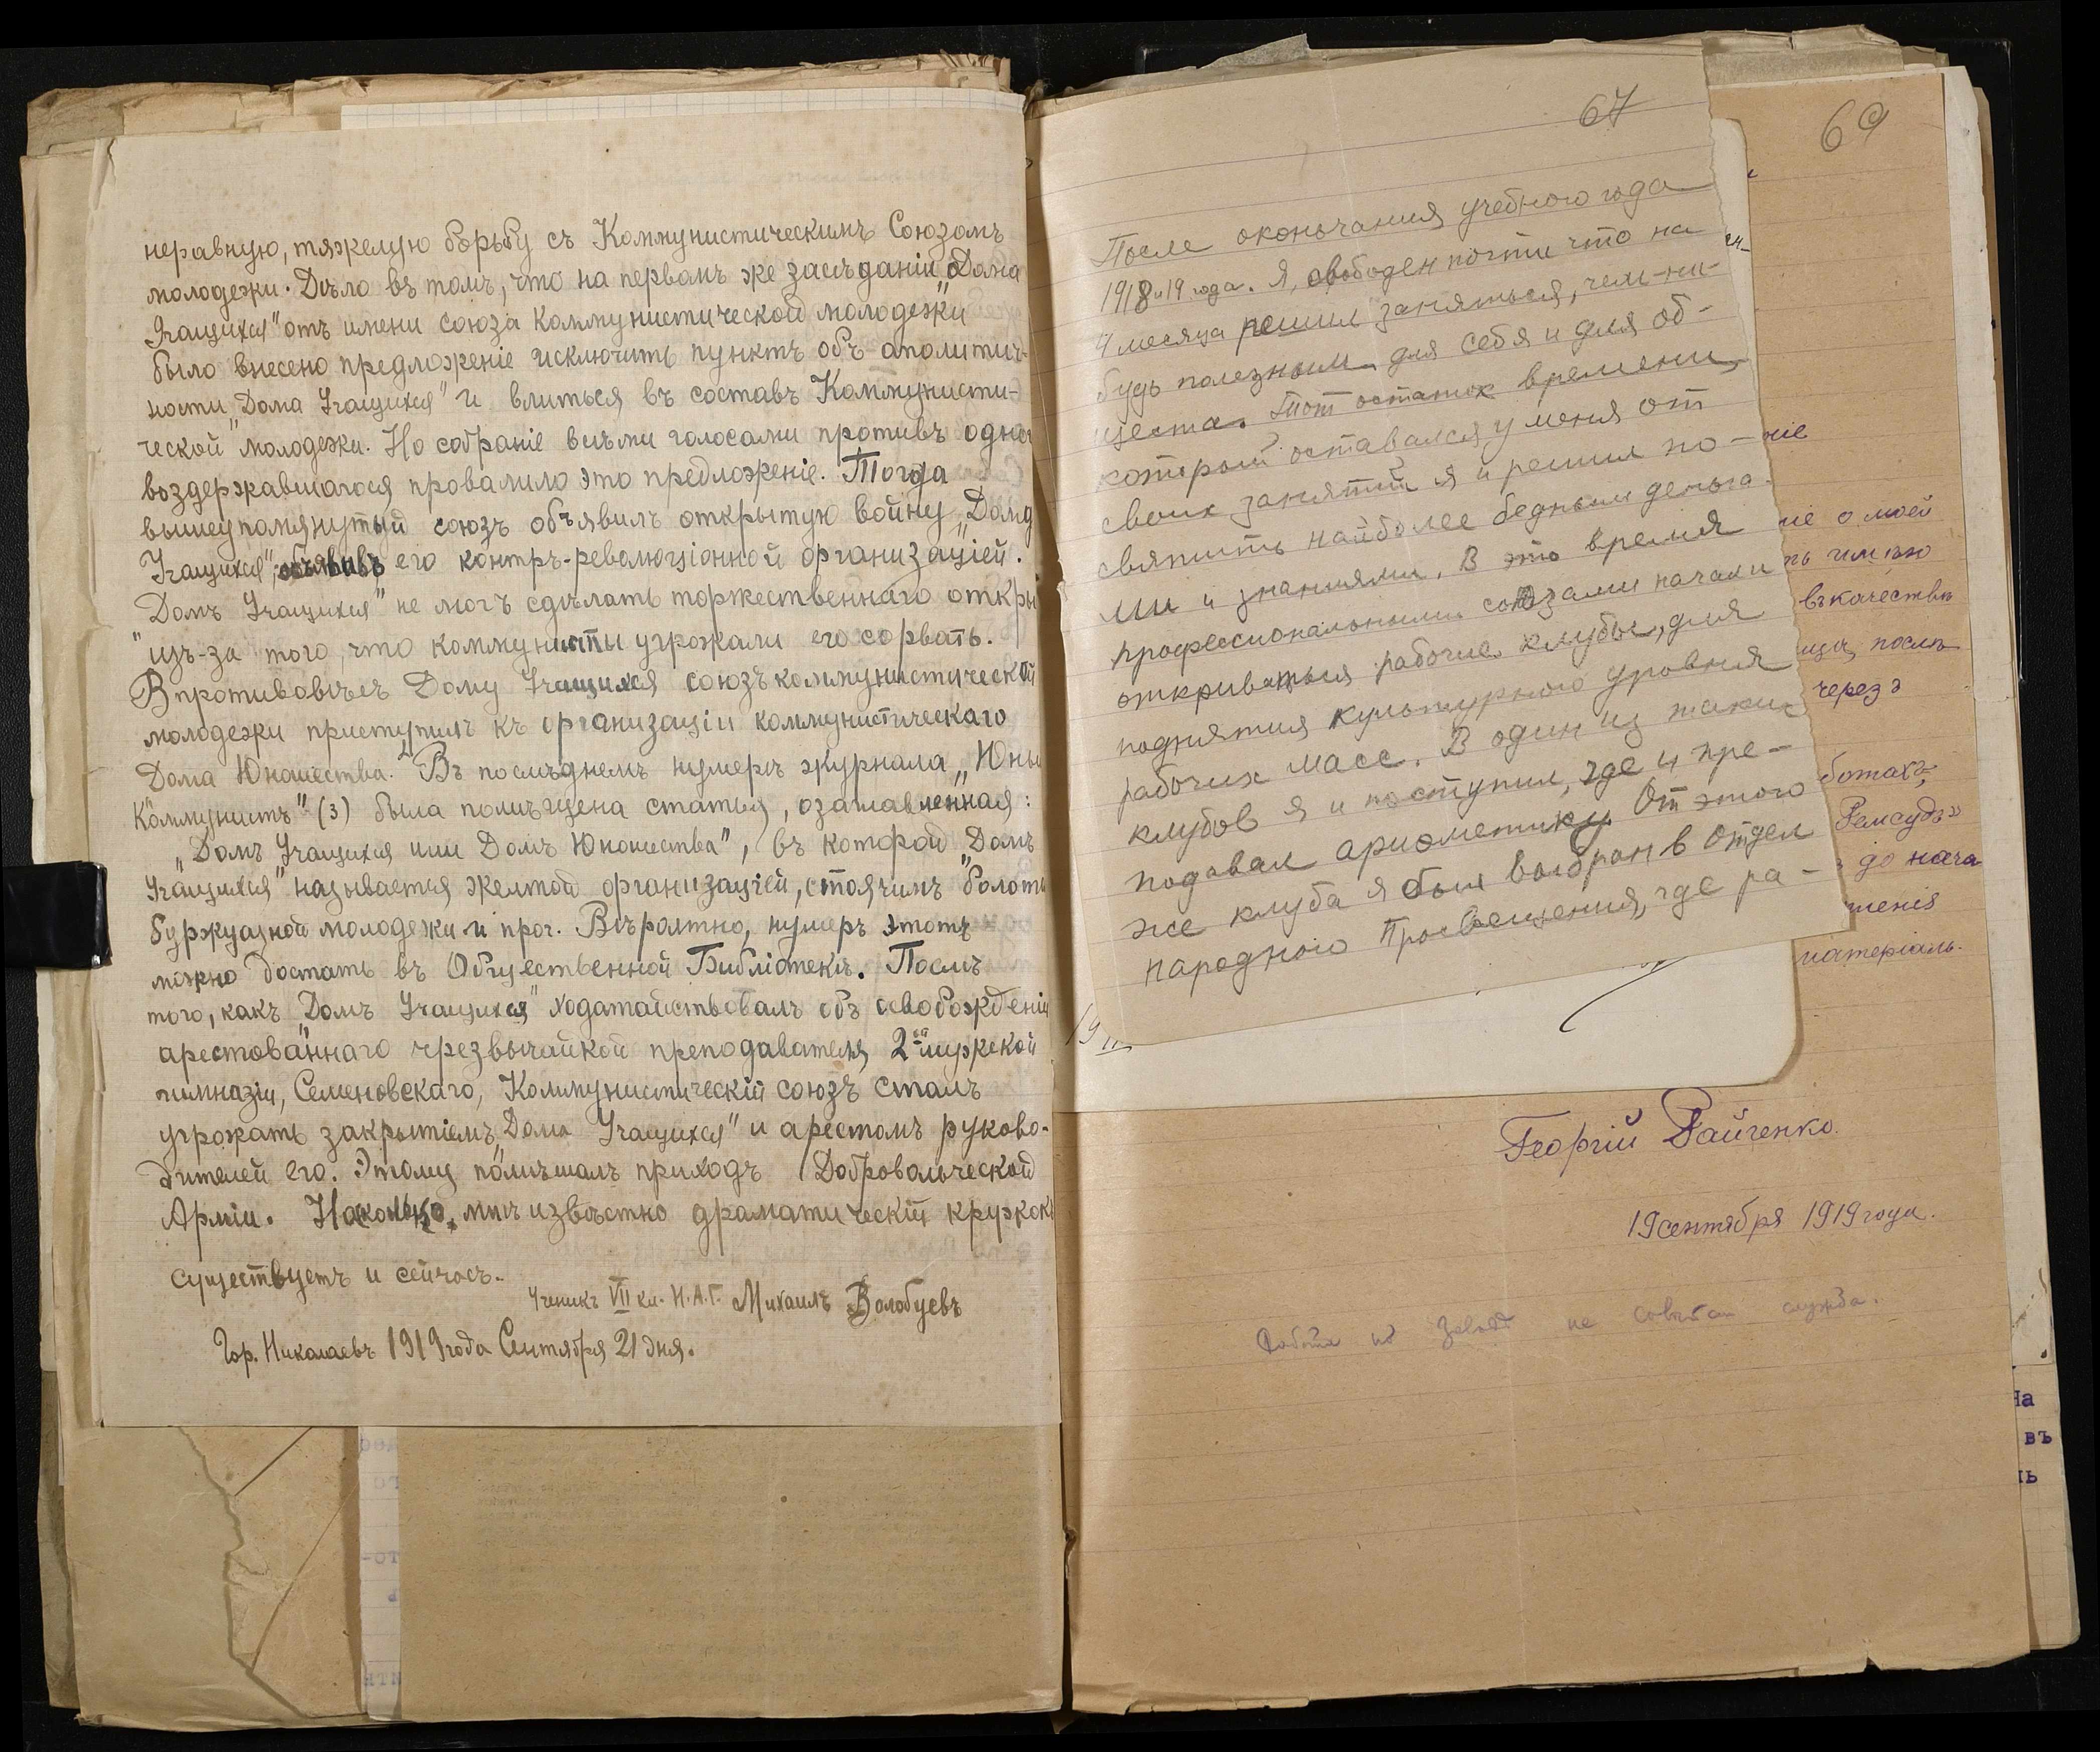 неравную, тяжелую борьбу съ Коммунистическимъ Союзомъ
молодежи. Дѣло въ томъ, что на первомъ же засѣданіи „Дома
Учащихся" отъ имени союза коммунистической молодежи
было внесено предложеніе исключить пунктъ объ аполитич-
ности „Дома Учащихся" и влиться въ составъ Коммунисти-
ческой молодежи. Но собраніе всѣми голосами противъ одного
воздержавшагося провалило это предложеніе. Тогда
вышеупомянутый союзъ объявилъ открытую войну „Дому
Учащихся", объявивъ его контръ-революціонной организаціей.
„Домъ Учащихся" не могъ сдѣлать торжественнаго откры
изъ-за того, что коммунисты угрожали его сорвать.
Впротивовѣсъ Дому Учащихся союзъ коммунистической
молодежи приступилъ къ организаціи коммунистическаго
Дома Юношества. Въ послѣднемъ нумерѣ журнала „Юный
Коммунистъ" (3) была помѣщена статья, озаглавленная:
„Домъ Учащихся или Домъ Юношества", въ которой „Домъ
Учащихся" называется желтой организаціей, стоячимъ болотомъ
буржуазной молодежи и проч. Вѣроятно, нумеръ этотъ
можно достать въ Общественной Библіотекѣ. Послѣ
того, какъ „Домъ Учащихся" ходатайствовалъ объ освобожденіи
арестованнаго чрезвычайкой преподавателя 2-ой мужской
гимназіи, Семеновскаго, Коммунистическій союзъ сталъ
угрожать закрытіемъ „Дома Учащихся" и арестомъ руково-
дителей его. Этому помѣшалъ приходъ Добровольческой
Арміи. Насколько мнѣ извѣстно драматическій кружокъ
существуетъ и сейчасъ.
Ученикъ VII кл. Н.А.Г. Михаилъ Волобуевъ
Гор. Николаевъ 1919 года Сентября 21 дня.
67
После оконьчания учебного года
1918 и 19 года. Я, свободен почти что на
4 месяца решил заняться, чем-ни-
будь полезным для себя и для об-
щества. Тот остаток времени,
который оставался у меня от
своих занятий я и решил по-
святить наиболее бедным деньга
ми и знаниями. В это время
профессиональными союзами начали
открываться рабочие клубы, для
поднятия культурного уровня
рабочих масс. В один из таких
клубов я и поступил, где и пре-
подавал арифметику. От этого
же клуба я был выбран в Отдел
народного Просвещения, где ра-
69
ніе
ніе о моей
ть имѣю
въ качествѣ
ица, послѣ
черезъ
ботахъ,
Ремсудъ»
до нача
шенія
матеріаль.
19
Георгій Райченко.
19 сентября 1919 года.
не служба.
На
въ
нь